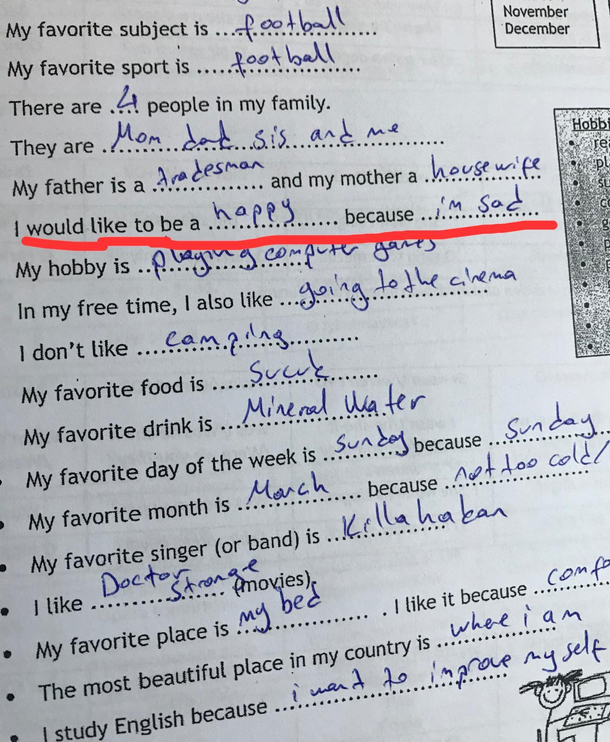 November
December
My favorite subject is ...football......
My favorite sport is .....football......
There are .4.. people in my family.
They are .Mom dad sis and me..........
My father is a .tradesman............ and my mother a .housewife
I would like to be a ...happy............ because ..i'm sad...
My hobby is ..playing computer games
In my free time, I also like ...going to the cinema
I don't like ...camping..........
My favorite food is .....Sucuk......
My favorite drink is ...Mineral Water
My favorite day of the week is .sunday because .sunday..
My favorite month is .March..... because .not too cold/
My favorite singer (or band) is ...Killa hakan
I like ..Doctor Strange (movies).
My favorite place is my bed............ . I like it because ...comfo
The most beautiful place in my country is .where i am
I study English because ...i want to improve my self
Hobbi